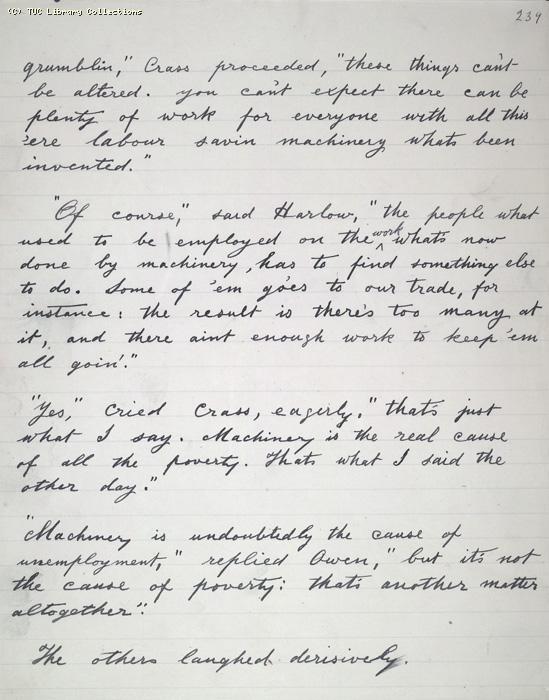 (C) TUC Library Collections
239
grumblin," Crass proceeded, "these things can't
be altered. you can't expect there can be
plenty of work for everyone with all this
'ere labour savin machinery whats been
invented."
"Of course," said Harlow, "the people what
used to be employed on the work whats now
done by machinery, has to find something else
to do. Some of 'em goes to our trade, for
instance: the result is there's too many at
it, and there aint enough work to keep 'em
all goin'."
"Yes," cried Crass, eagerly, "that's just
what I say. Machinery is the real cause
of all the poverty. Thats what I said the
other day."
"Machinery is undoubtedly the cause of
unemployment," replied Owen, "but it's not
the cause of poverty: that's another matter
altogether".
The others laughed derisively.